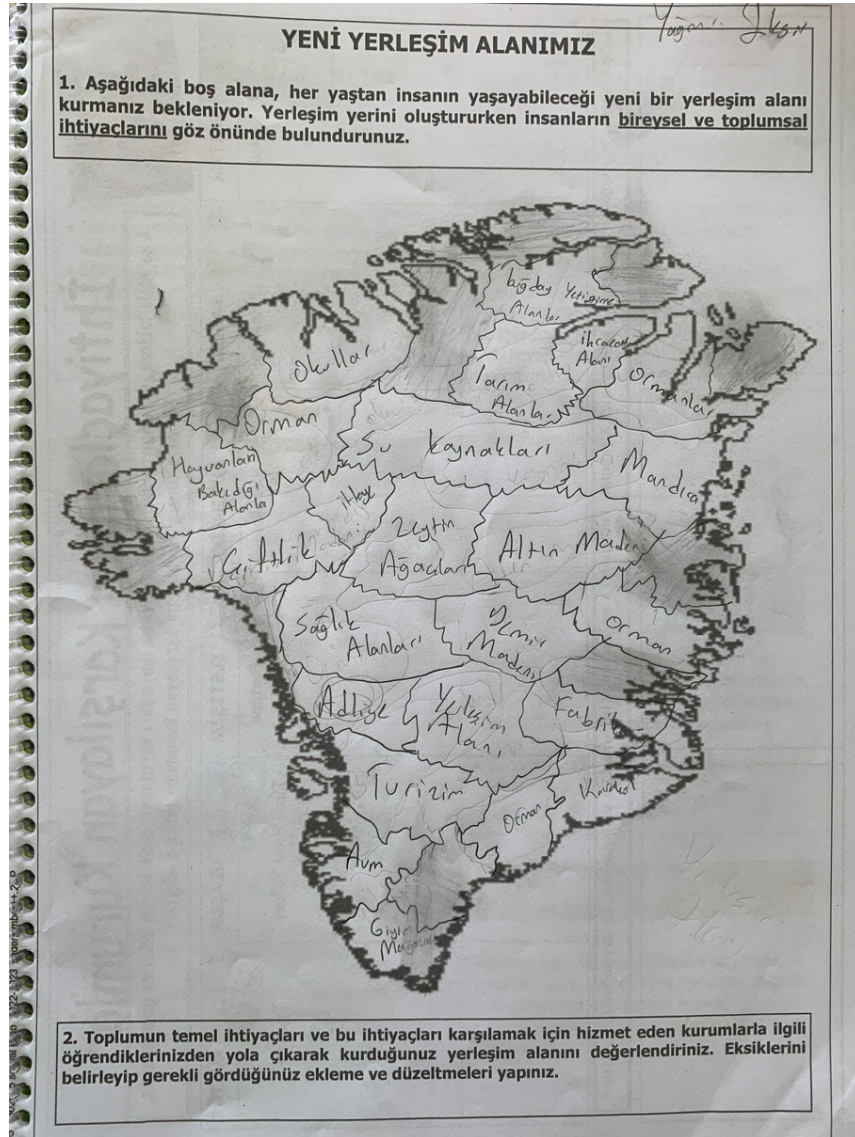 Yağmur
YENİ YERLEŞİM ALANIMIZ
1. Aşağıdaki boş alana, her yaştan insanın yaşayabileceği yeni bir yerleşim alanı
kurmanız bekleniyor. Yerleşim yerini oluştururken insanların bireysel ve toplumsal
ihtiyaçlarını göz önünde bulundurunuz.
buğday Yetişme
Alanlar
Okullar
ihracat
Alanı
Tarım
Alanlar
Ormanlar
Orman
Su kaynakları
Mandıra
Hayvanları
Alanla
Çiftlik
Zeytin
Ağaçları
Altın Maden
Sağlık
Alanları
Demir
Madeni
Orman
Adliye
Yerleşim
Alanı
Fabrik
Turizim
Orman
Avm
Giyim
2. Toplumun temel ihtiyaçları ve bu ihtiyaçları karşılamak için hizmet eden kurumlarla ilgili
öğrendiklerinizden yola çıkarak kurduğunuz yerleşim alanını değerlendiriniz. Eksiklerini
belirleyip gerekli gördüğünüz ekleme ve düzeltmeleri yapınız.